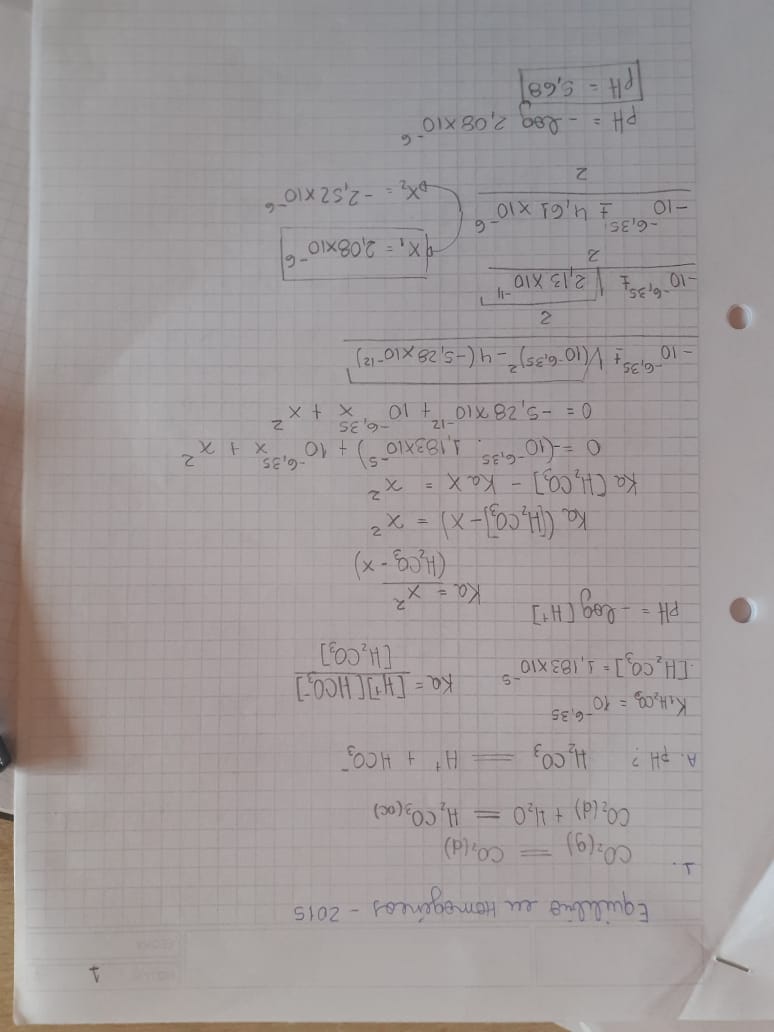 1
Equilibrio en Homogéneos - 2015
1.
CO₂(g) = CO₂(d)
CO₂(d) + H₂O = H₂CO₃(ac)
A. pH? H₂CO₃ = H⁺ + HCO₃⁻
K₁H₂CO₃ = 10^-6,35
[H₂CO₃] = 1,183x10^-5
Ka = [H⁺][HCO₃⁻] / [H₂CO₃]
pH = -log [H⁺]
Ka = x² / (H₂CO₃ - x)
Ka ([H₂CO₃] - x) = x²
Ka [H₂CO₃] - Ka x = x²
0 = -(10^-6,35 . 1,183x10^-5) + 10^-6,35 x + x²
0 = -5,28x10^-12 + 10^-6,35 x + x²
-10^-6,35 ± √(10^-6,35)² - 4(-5,28x10^-12) / 2
-10^-6,35 ± √2,13x10^-11 / 2
-10^-6,35 ± 4,61x10^-6 / 2
x₁ = 2,08x10^-6
x₂ = -2,52x10^-6
pH = -log 2,08x10^-6
pH = 5,68